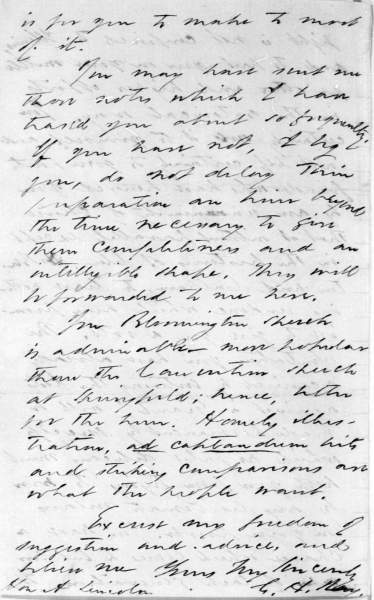 is for you to make to most
of it.
You may have sent me
those notes which I have
teased you about so frequently.
If you have not, I beg
you, do not delay their
preparation an hour beyond
the time necessary to give
them completeness and an
intelligible shape. They will
be forwarded to me here.
Your Bloomington speech
is admirable more popular
than the Convention speech
at Springfield; hence, better
for the time. Homely illus-
tration, ad captandum hits
and striking comparisons are
what the people want.
Excuse my freedom of
suggestion and advice, and
believe me Yours Very Sincerely
Hon A Lincoln. C. H. Ray.